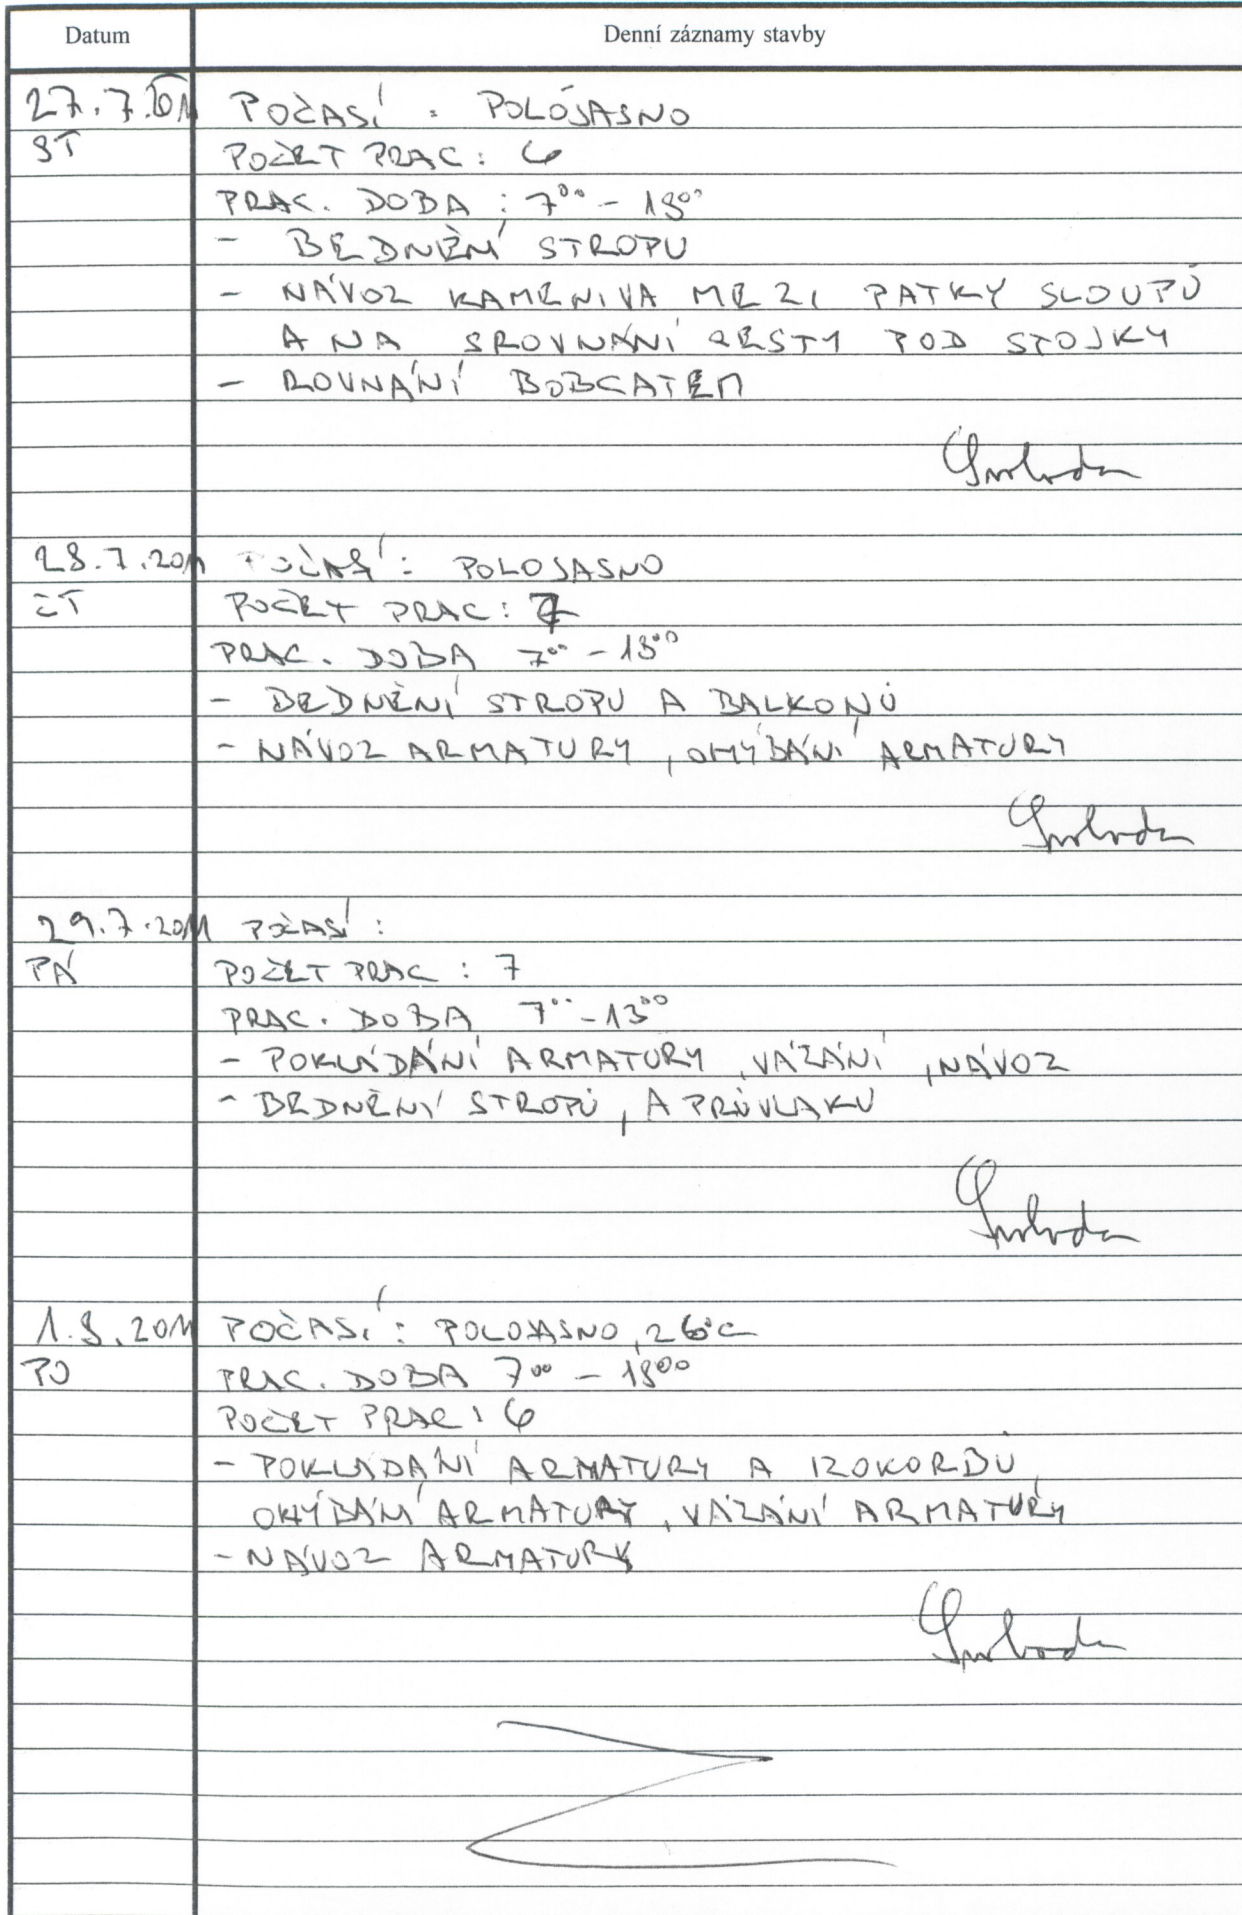 Datum Denní záznamy stavby
27.7.2011 POČASÍ : POLOJASNO
ST POČET PRAC : 6
PRAC. DOBA : 7⁰⁰ - 18⁰⁰
- BEDNĚNÍ STROPU
- NÁVOZ KAMENIVA MEZI PATKY SLOUPŮ
A NA SROVNÁNÍ CESTY POD STOJKY
- ROVNÁNÍ BOBCATEM
Svoboda
28.7.2011 POČASÍ : POLOJASNO
ČT POČET PRAC : 7
PRAC. DOBA 7⁰⁰ - 18⁰⁰
- BEDNĚNÍ STROPU A BALKONŮ
- NÁVOZ ARMATURY , OHÝBÁNÍ ARMATURY
Svoboda
29.7.2011 POČASÍ :
PÁ POČET PRAC : 7
PRAC. DOBA 7⁰⁰ - 13⁰⁰
- POKLÁDÁNÍ ARMATURY , VÁZÁNÍ , NÁVOZ
- BEDNĚNÍ STROPŮ , A PRŮVLAKŮ
Svoboda
1.8.2011 POČASÍ : POLOJASNO , 26°C
PO PRAC. DOBA 7⁰⁰ - 18⁰⁰
POČET PRAC : 6
- POKLÁDÁNÍ ARMATURY A IZOKORBŮ ,
OHÝBÁNÍ ARMATURY , VÁZÁNÍ ARMATURY
- NÁVOZ ARMATURY
Svoboda